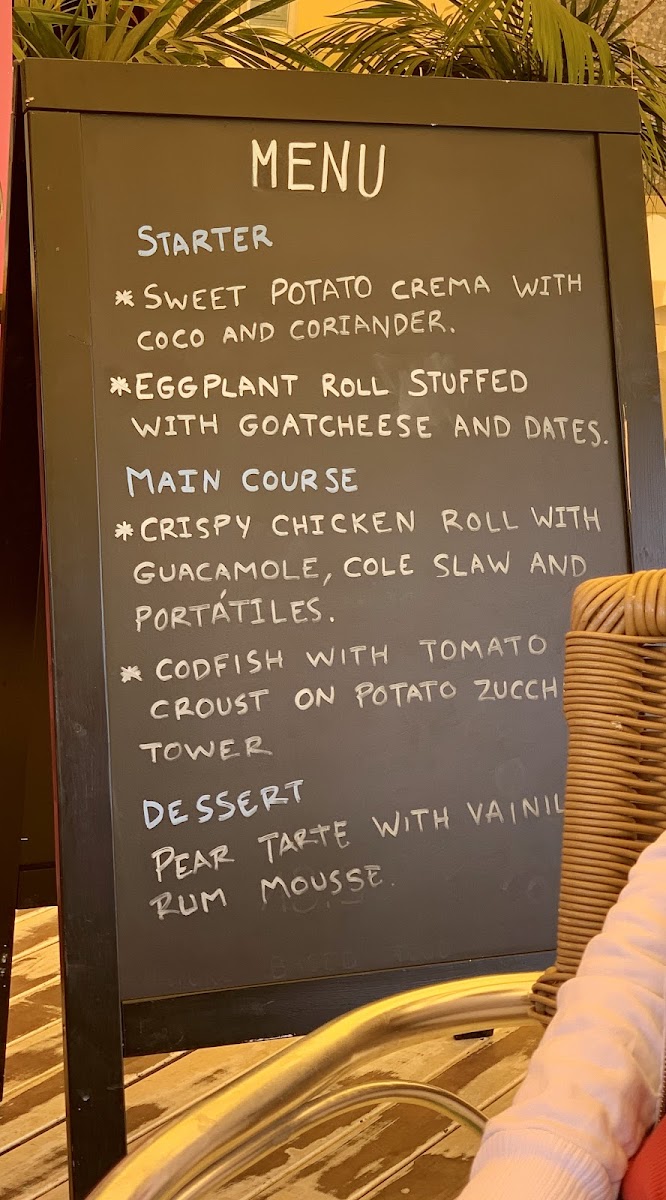 MENU
STARTER
* SWEET POTATO CREMA WITH
COCO AND CORIANDER.
* EGGPLANT ROLL STUFFED
WITH GOATCHEESE AND DATES.
MAIN COURSE
* CRISPY CHICKEN ROLL WITH
GUACAMOLE, COLE SLAW AND
PORTÁTILES.
* CODFISH WITH TOMATO
CROUST ON POTATO ZUCCH
TOWER
DESSERT
PEAR TARTE WITH VAINIL
RUM MOUSSE.